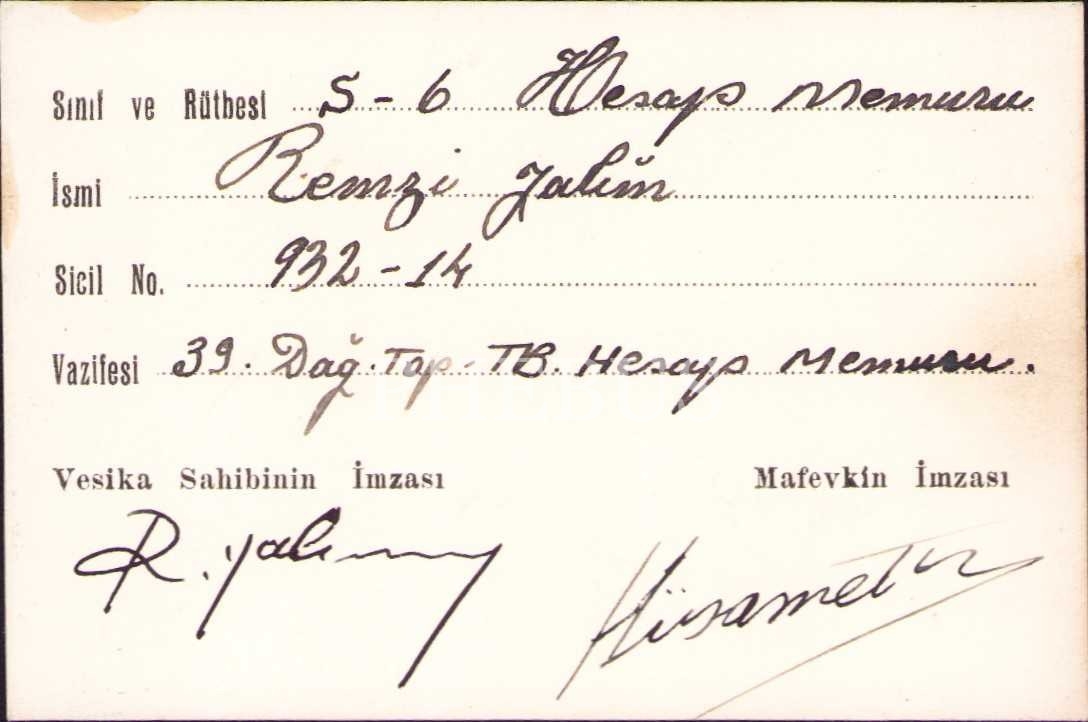 Sınıf ve Rütbesi S-6 Hesap Memuru
İsmi Remzi Yalım
Sicil No. 932-14
Vazifesi 39. Dağ. Top. TB. Hesap Memuru.
Vesika Sahibinin İmzası Mafevkin İmzası
R. Yalım Hüsamettin